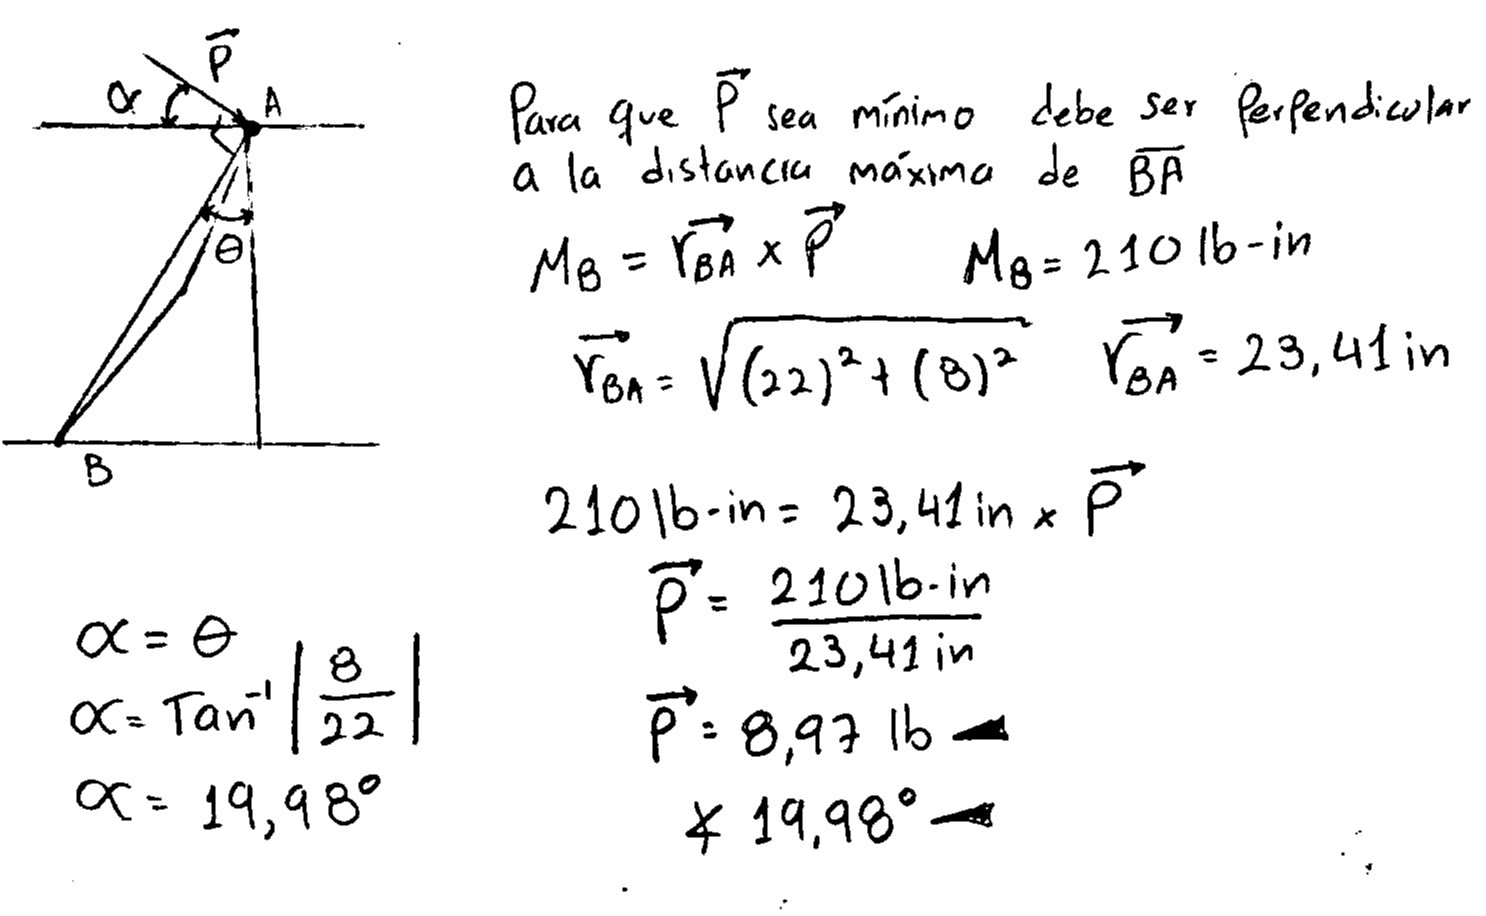 P⃗
α
A
θ
B
Para que P⃗ sea mínimo debe ser Perpendicular
a la distancia máxima de B̅A̅
M_B = r⃗_BA x P⃗ M_B = 210 lb-in
r⃗_BA = √(22)² + (8)² r⃗_BA = 23,41 in
210 lb-in = 23,41 in x P⃗
P⃗ = 210 lb-in / 23,41 in
P⃗ = 8,97 lb
∡ 19,98°
α = θ
α = Tan⁻¹ | 8 / 22 |
α = 19,98°